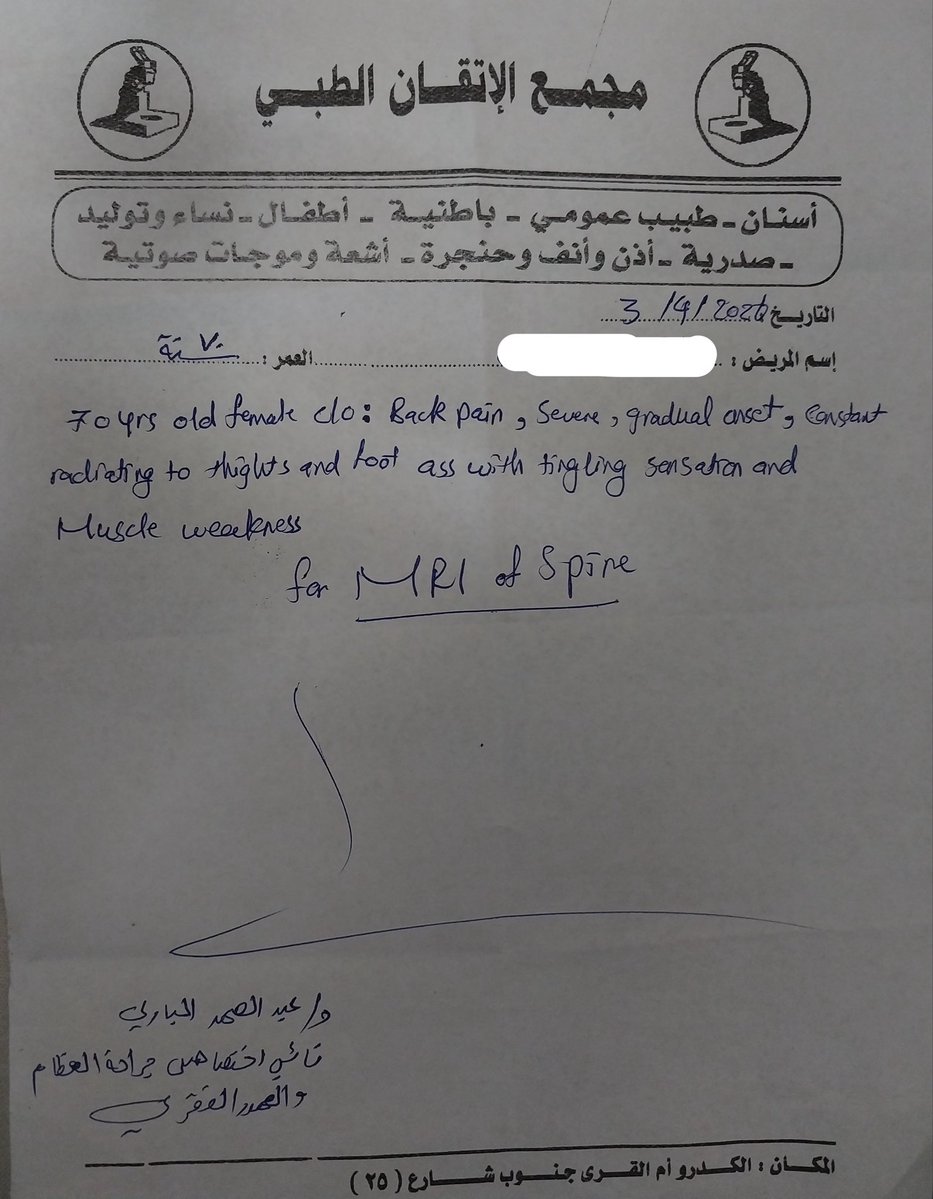 مجمع الإتقان الطبي
أسنان - طبيب عمومي - باطنية - أطفال - نساء وتوليد
- صدرية - أذن وأنف وحنجرة - أشعة وموجات صوتية
التاريخ 3/4/2026
إسم المريض : العمر : ٧٠ سنة
70 yrs old female c/o: Back pain, Severe, gradual onset, Constant
radiating to thights and foot ass with tingling sensation and
Muscle weakness
for MRI of Spine
د/ عبد الصمد
نائب اختصاصي جراحة العظام
والعمود الفقري
المكان : الكدرو أم القرى جنوب شارع (٢٥)